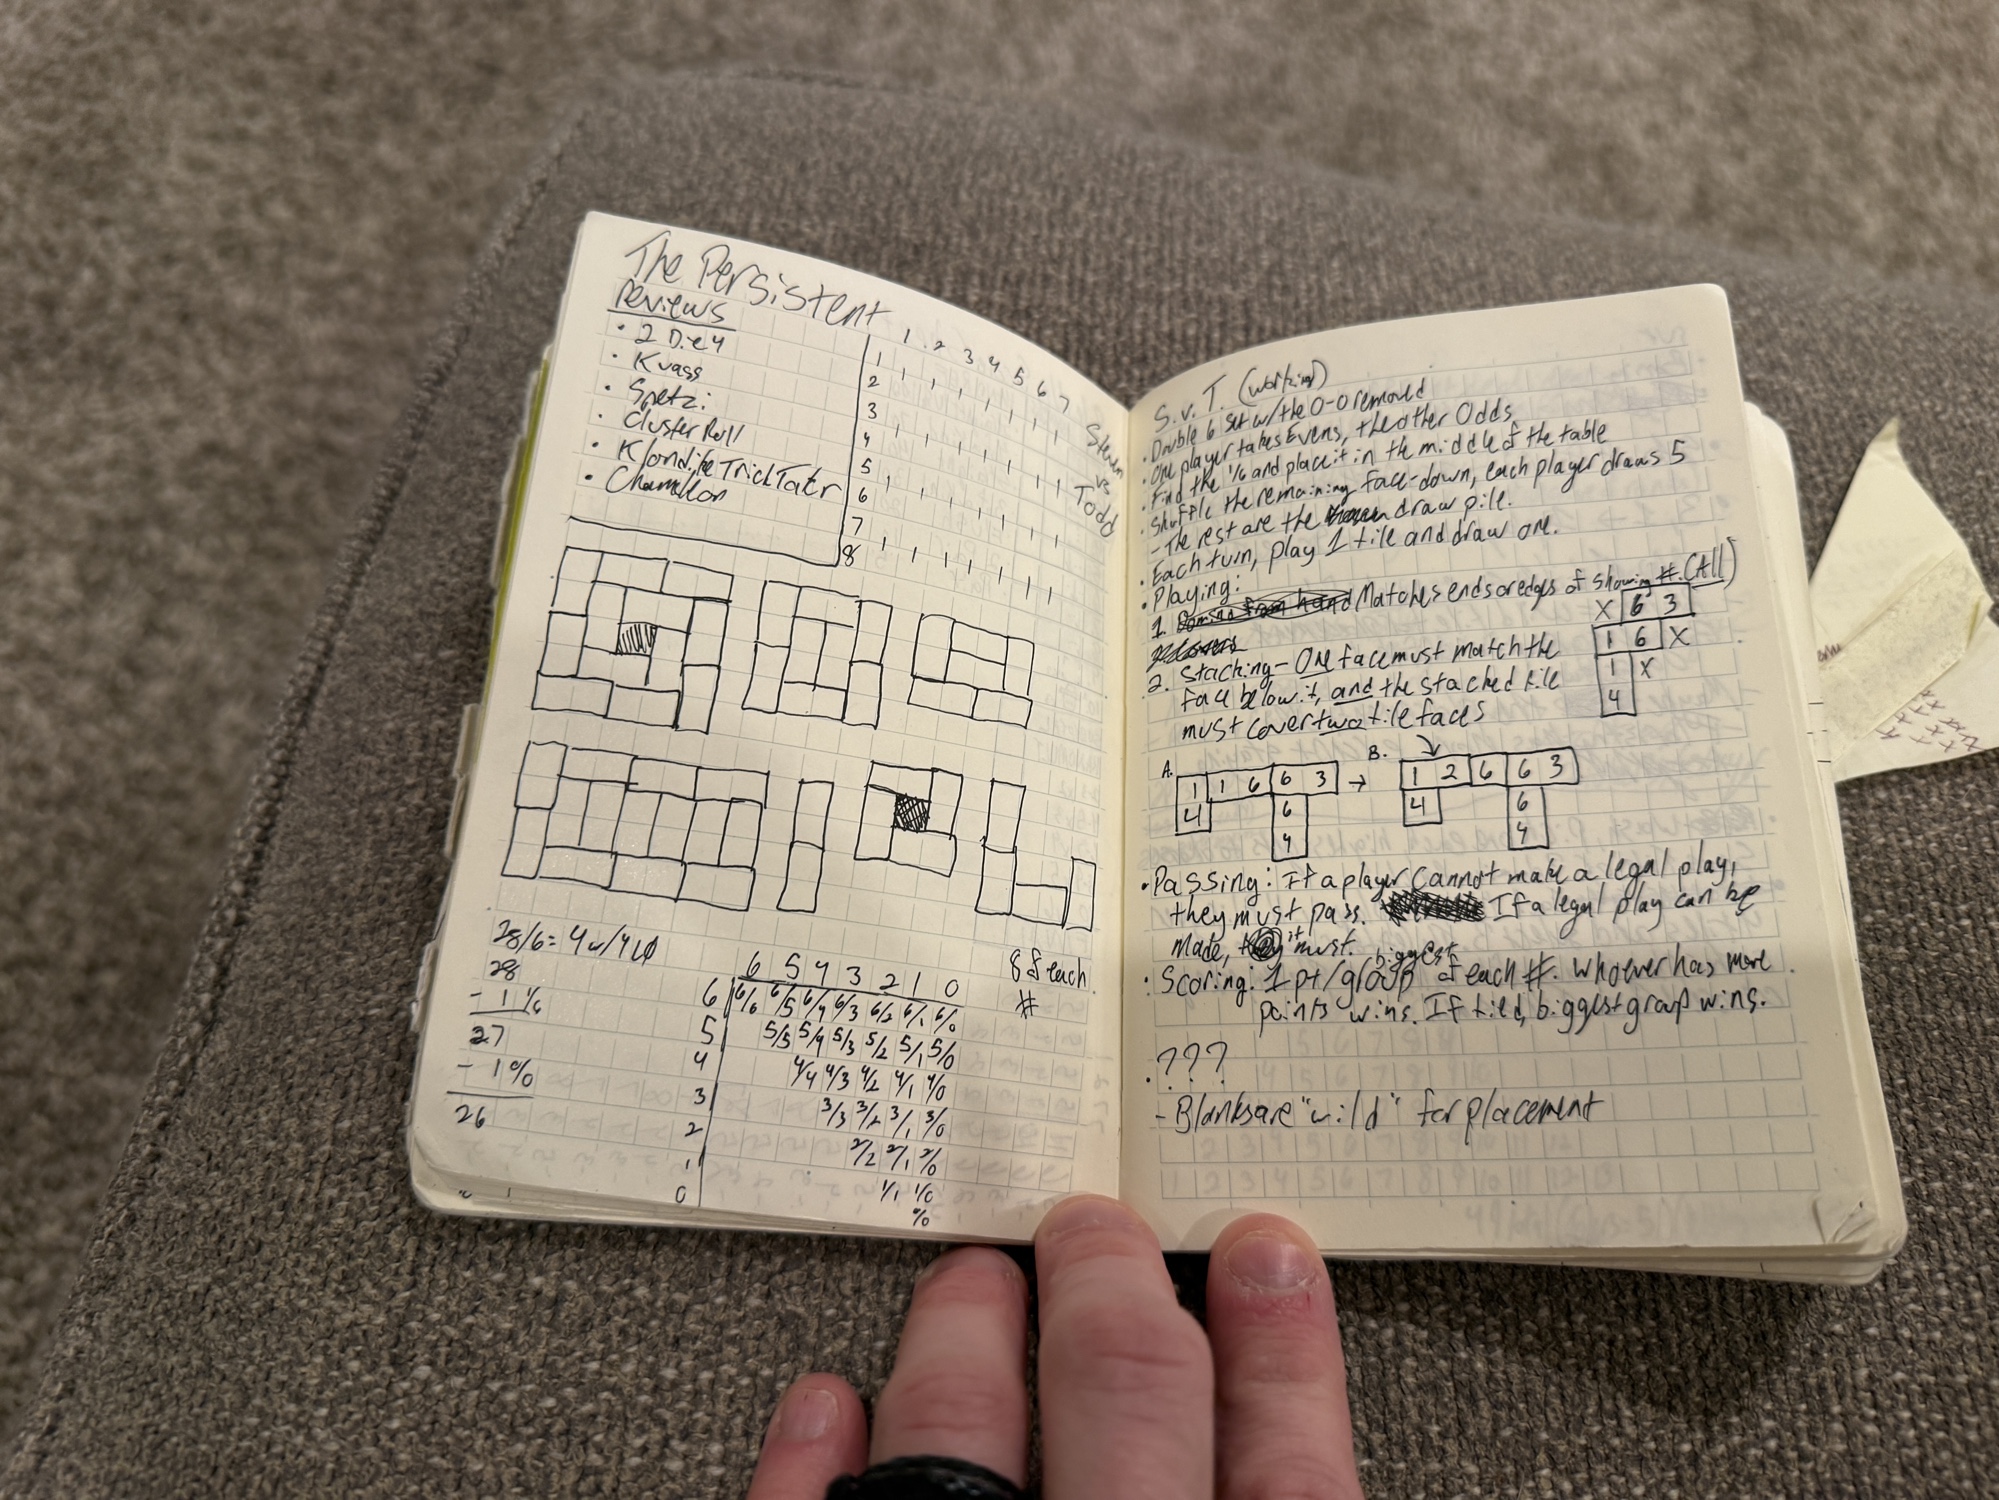 The Persistent
Reviews
• 2 Die 4
• Kvass
• Spetzi
• Cluster Roll
• Klondike TrickTakr
• Chamelon
1 2 3 4 5 6 7
1
2
3
4
5
6
7
8
Steven
vs
Todd
28/6 = 4 w/4 LO
28
- 1 1/6
27
- 1 0/0
26
8 of each
#
6 5 4 3 2 1 0
6 6/6 6/5 6/4 6/3 6/2 6/1 6/0
5 5/5 5/4 5/3 5/2 5/1 5/0
4 4/4 4/3 4/2 4/1 4/0
3 3/3 3/2 3/1 3/0
2 2/2 2/1 2/0
1 1/1 1/0
0 0/0
S.v.T. (working)
• Double 6 set w/the 0-0 removed
• One player takes Evens, the other Odds
• Find the 1/6 and place it in the middle of the table
• Shuffle the remaining face-down, each player draws 5
- The rest are the draw pile.
• Each turn, play 1 tile and draw one.
• Playing:
1. Matches ends or edges of showing #. (All)
2. Stacking - One face must match the
face below it, and the stacked tile
must cover two tile faces
X 6 3
1 6 X
1 X
4
A. 1 1 6 6 3 →
4 6
4
B. 1 2 6 6 3
4 6
4
• Passing: If a player cannot make a legal play,
they must pass. If a legal play can be
made, it must.
• Scoring: 1 pt/biggest group of each #. Whoever has more
points wins. If tied, biggest group wins.
• ???
- Blanks are "wild" for placement